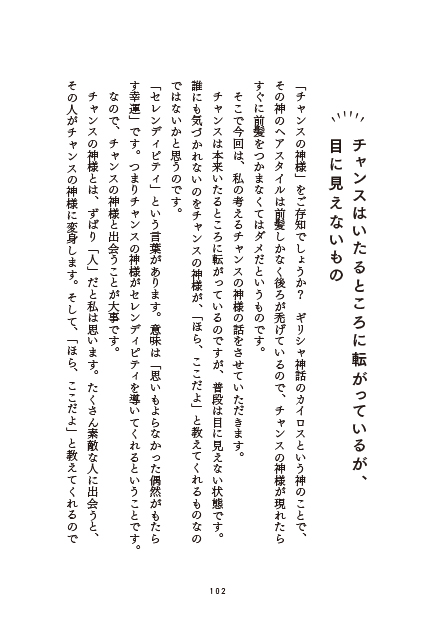 チャンスはいたるところに転がっているが、
目に見えないもの
「チャンスの神様」をご存知でしょうか？　ギリシャ神話のカイロスという神のことで、
その神のヘアスタイルは前髪しかなく後ろが禿げているので、チャンスの神様が現れたら
すぐに前髪をつかまなくてはダメだというものです。
そこで今回は、私の考えるチャンスの神様の話をさせていただきます。
チャンスは本来いたるところに転がっているのですが、普段は目に見えない状態です。
誰にも気づかれないのをチャンスの神様が、「ほら、ここだよ」と教えてくれるものなの
ではないかと思うのです。
「セレンディピティ」という言葉があります。意味は「思いもよらなかった偶然がもたら
す幸運」です。つまりチャンスの神様がセレンディピティを導いてくれるということです。
なので、チャンスの神様と出会うことが大事です。
チャンスの神様とは、ずばり「人」だと私は思います。たくさん素敵な人に出会うと、
その人がチャンスの神様に変身します。そして、「ほら、ここだよ」と教えてくれるので
102